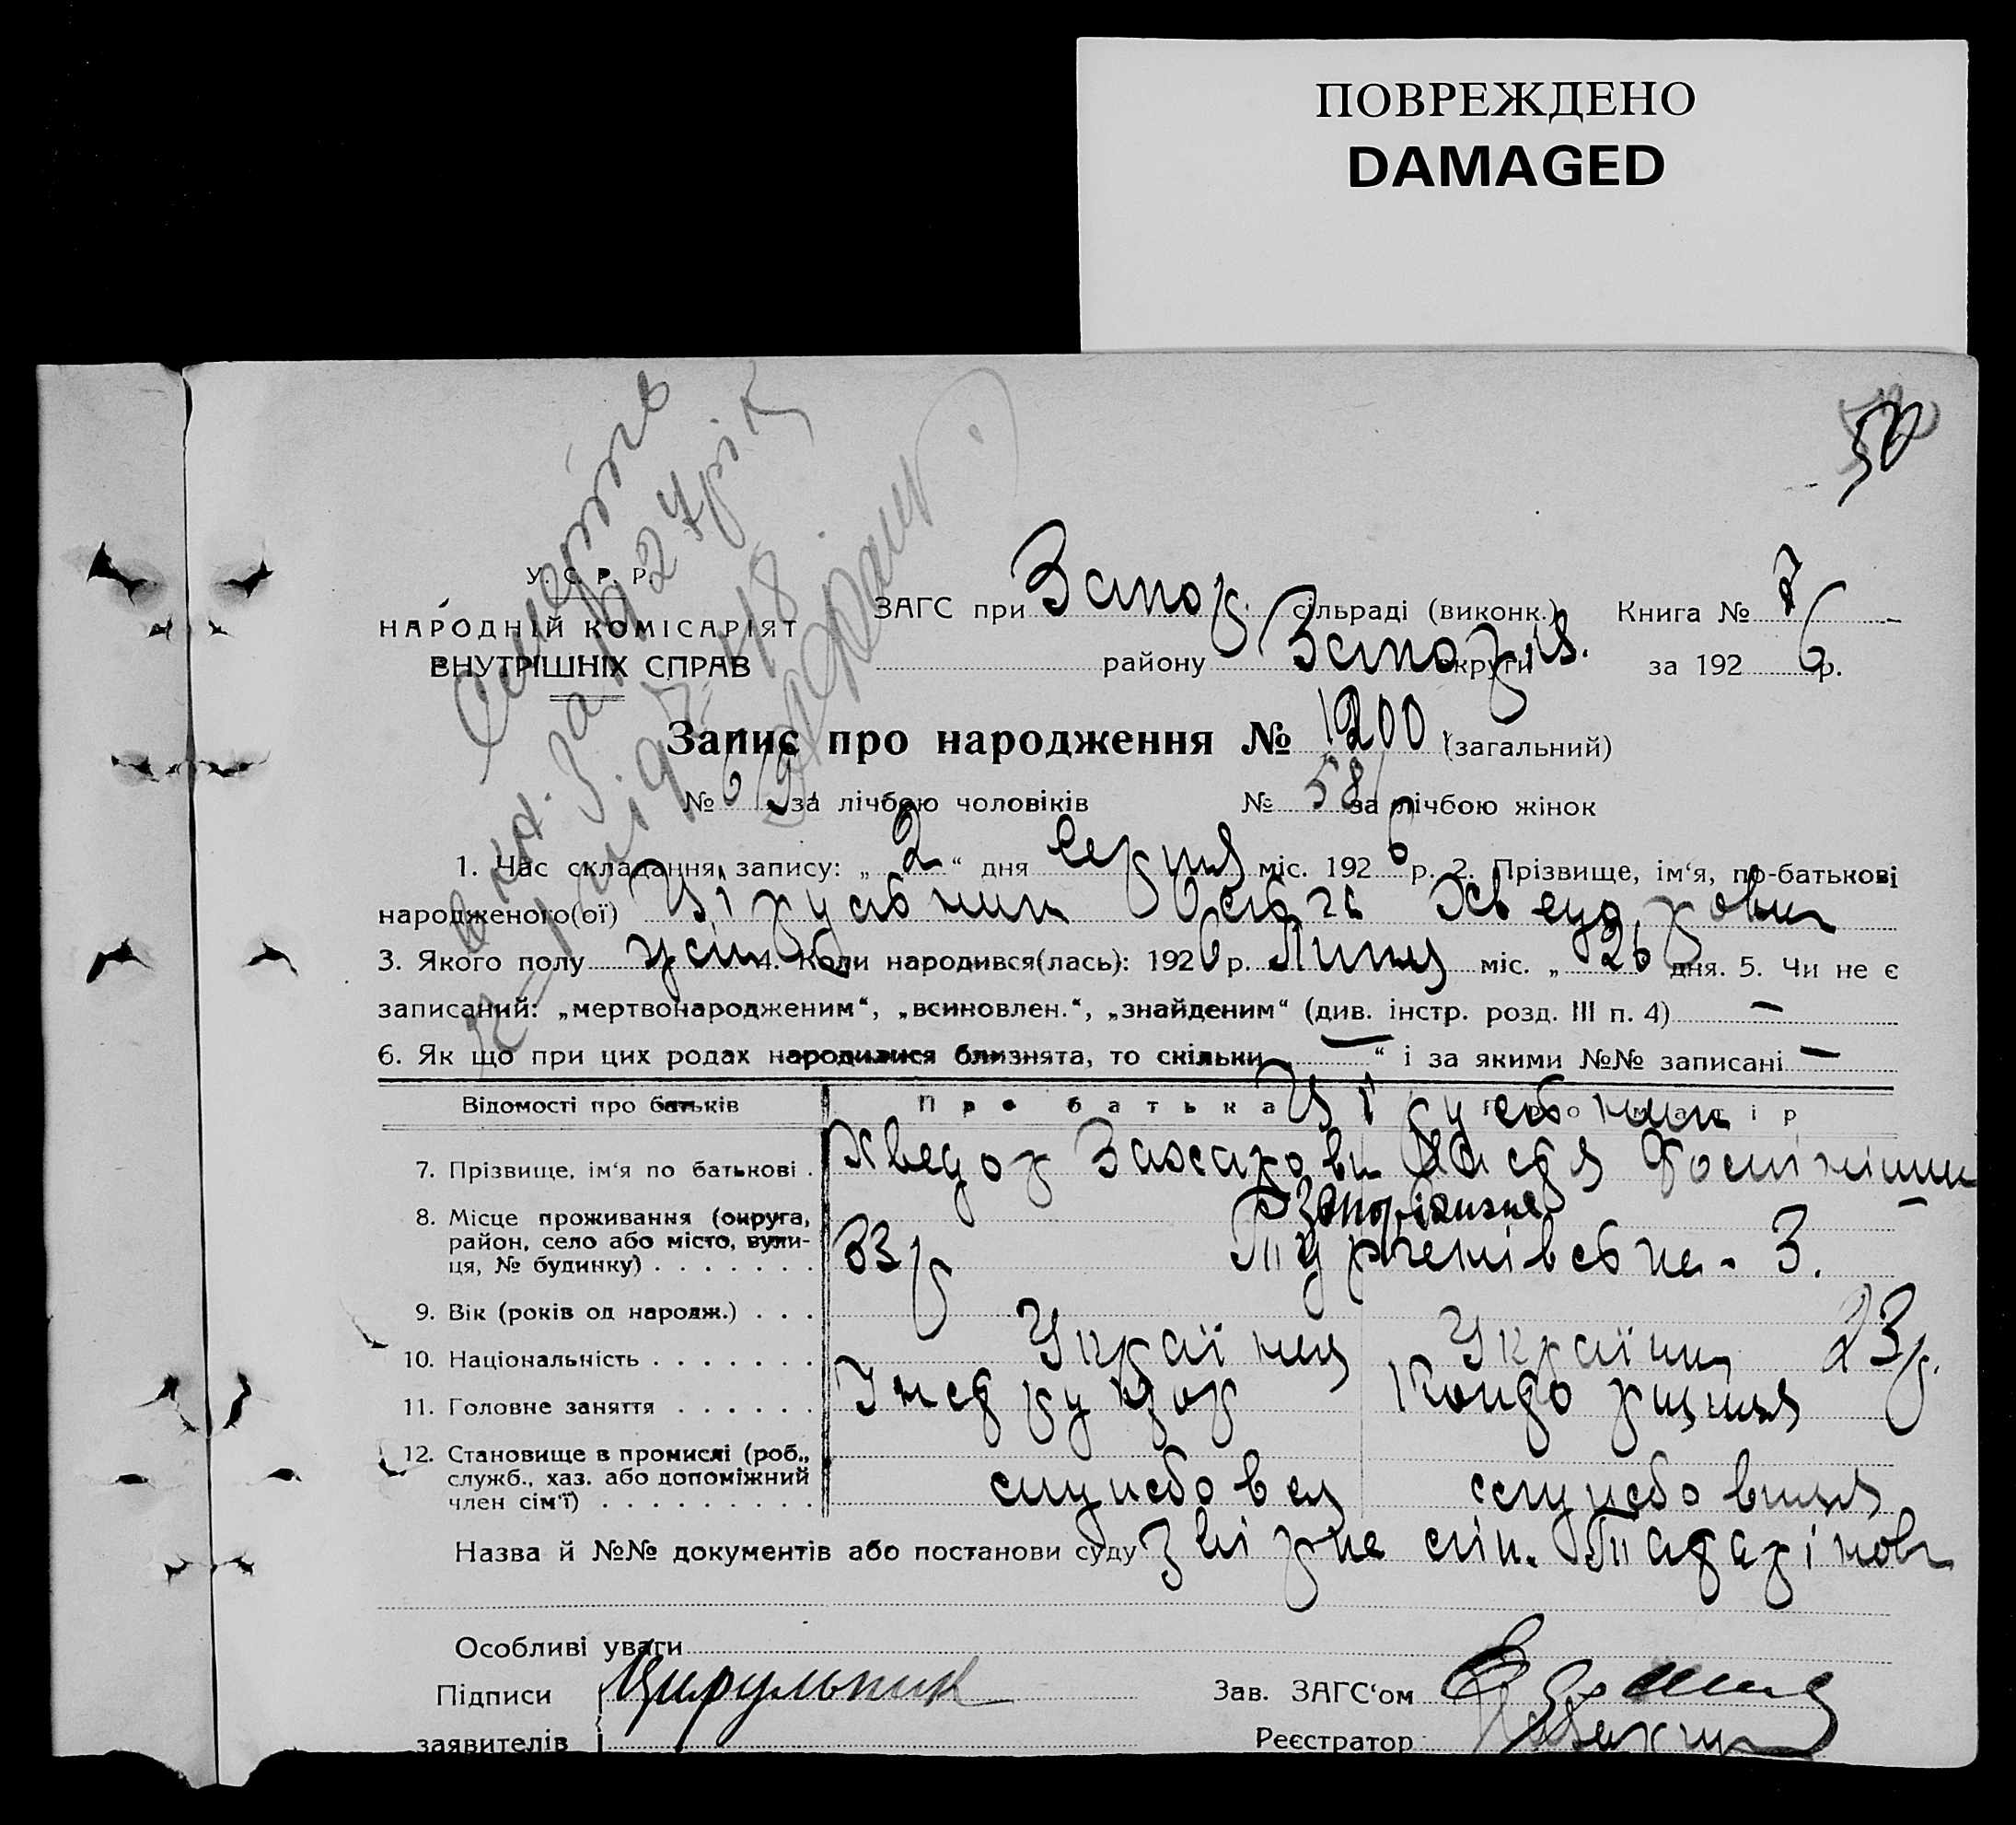 ПОВРЕЖДЕНО
DAMAGED
50
Смерть
в кн. за 1927 рік
У. С. Р. Р.
НАРОДНІЙ КОМІСАРІЯТ
ВНУТРІШНІХ СПРАВ
ЗАГС при Запор. сільраді (виконк.) Книга № 7
району Запоріз. округи за 1926 р.
Запис про народження № 1200 (загальний)
№ 619 за лічбою чоловіків № 581 за лічбою жінок
1. Час складання запису: „2“ дня Серпня міс. 1926 р. 2. Прізвище, ім‘я, по-батькові
народженого(ої) Цірульник Ольга Хведоровн
3. Якого полу жін 4. Коли народився(лась): 1926 р. Липця міс. „26 дня. 5. Чи не є
записаний: „мертвонародженим“, „всиновлен.“, „знайденим“ (див. інстр. розд. III п. 4) —
6. Як що при цих родах народилися близнята, то скільки „—“ і за якими №№ записані —
Відомості про батьків Про батька Про матір
Цірульник
7. Прізвище, ім‘я по батькові . Хведор Захарови Настя
8. Місце проживання (округа, район, село або місто, вулиця, № будинку) . . . . . . . Запоріжжя
Тургенівська - 3.
9. Вік (років од народж.) . . . 33 р 23 р.
10. Національність . . . . . . . Українця Українк
11. Головне заняття . . . . . . Інструктор Конторщиця
12. Становище в промислі (роб., служб., хаз. або допоміжний член сім‘ї) . . . . . . . . . службовця службовиця
Назва й №№ документів або постанови суду
Особливі уваги
Підписи Цирульник Зав. ЗАГС‘ом
заявителів Реєстратор